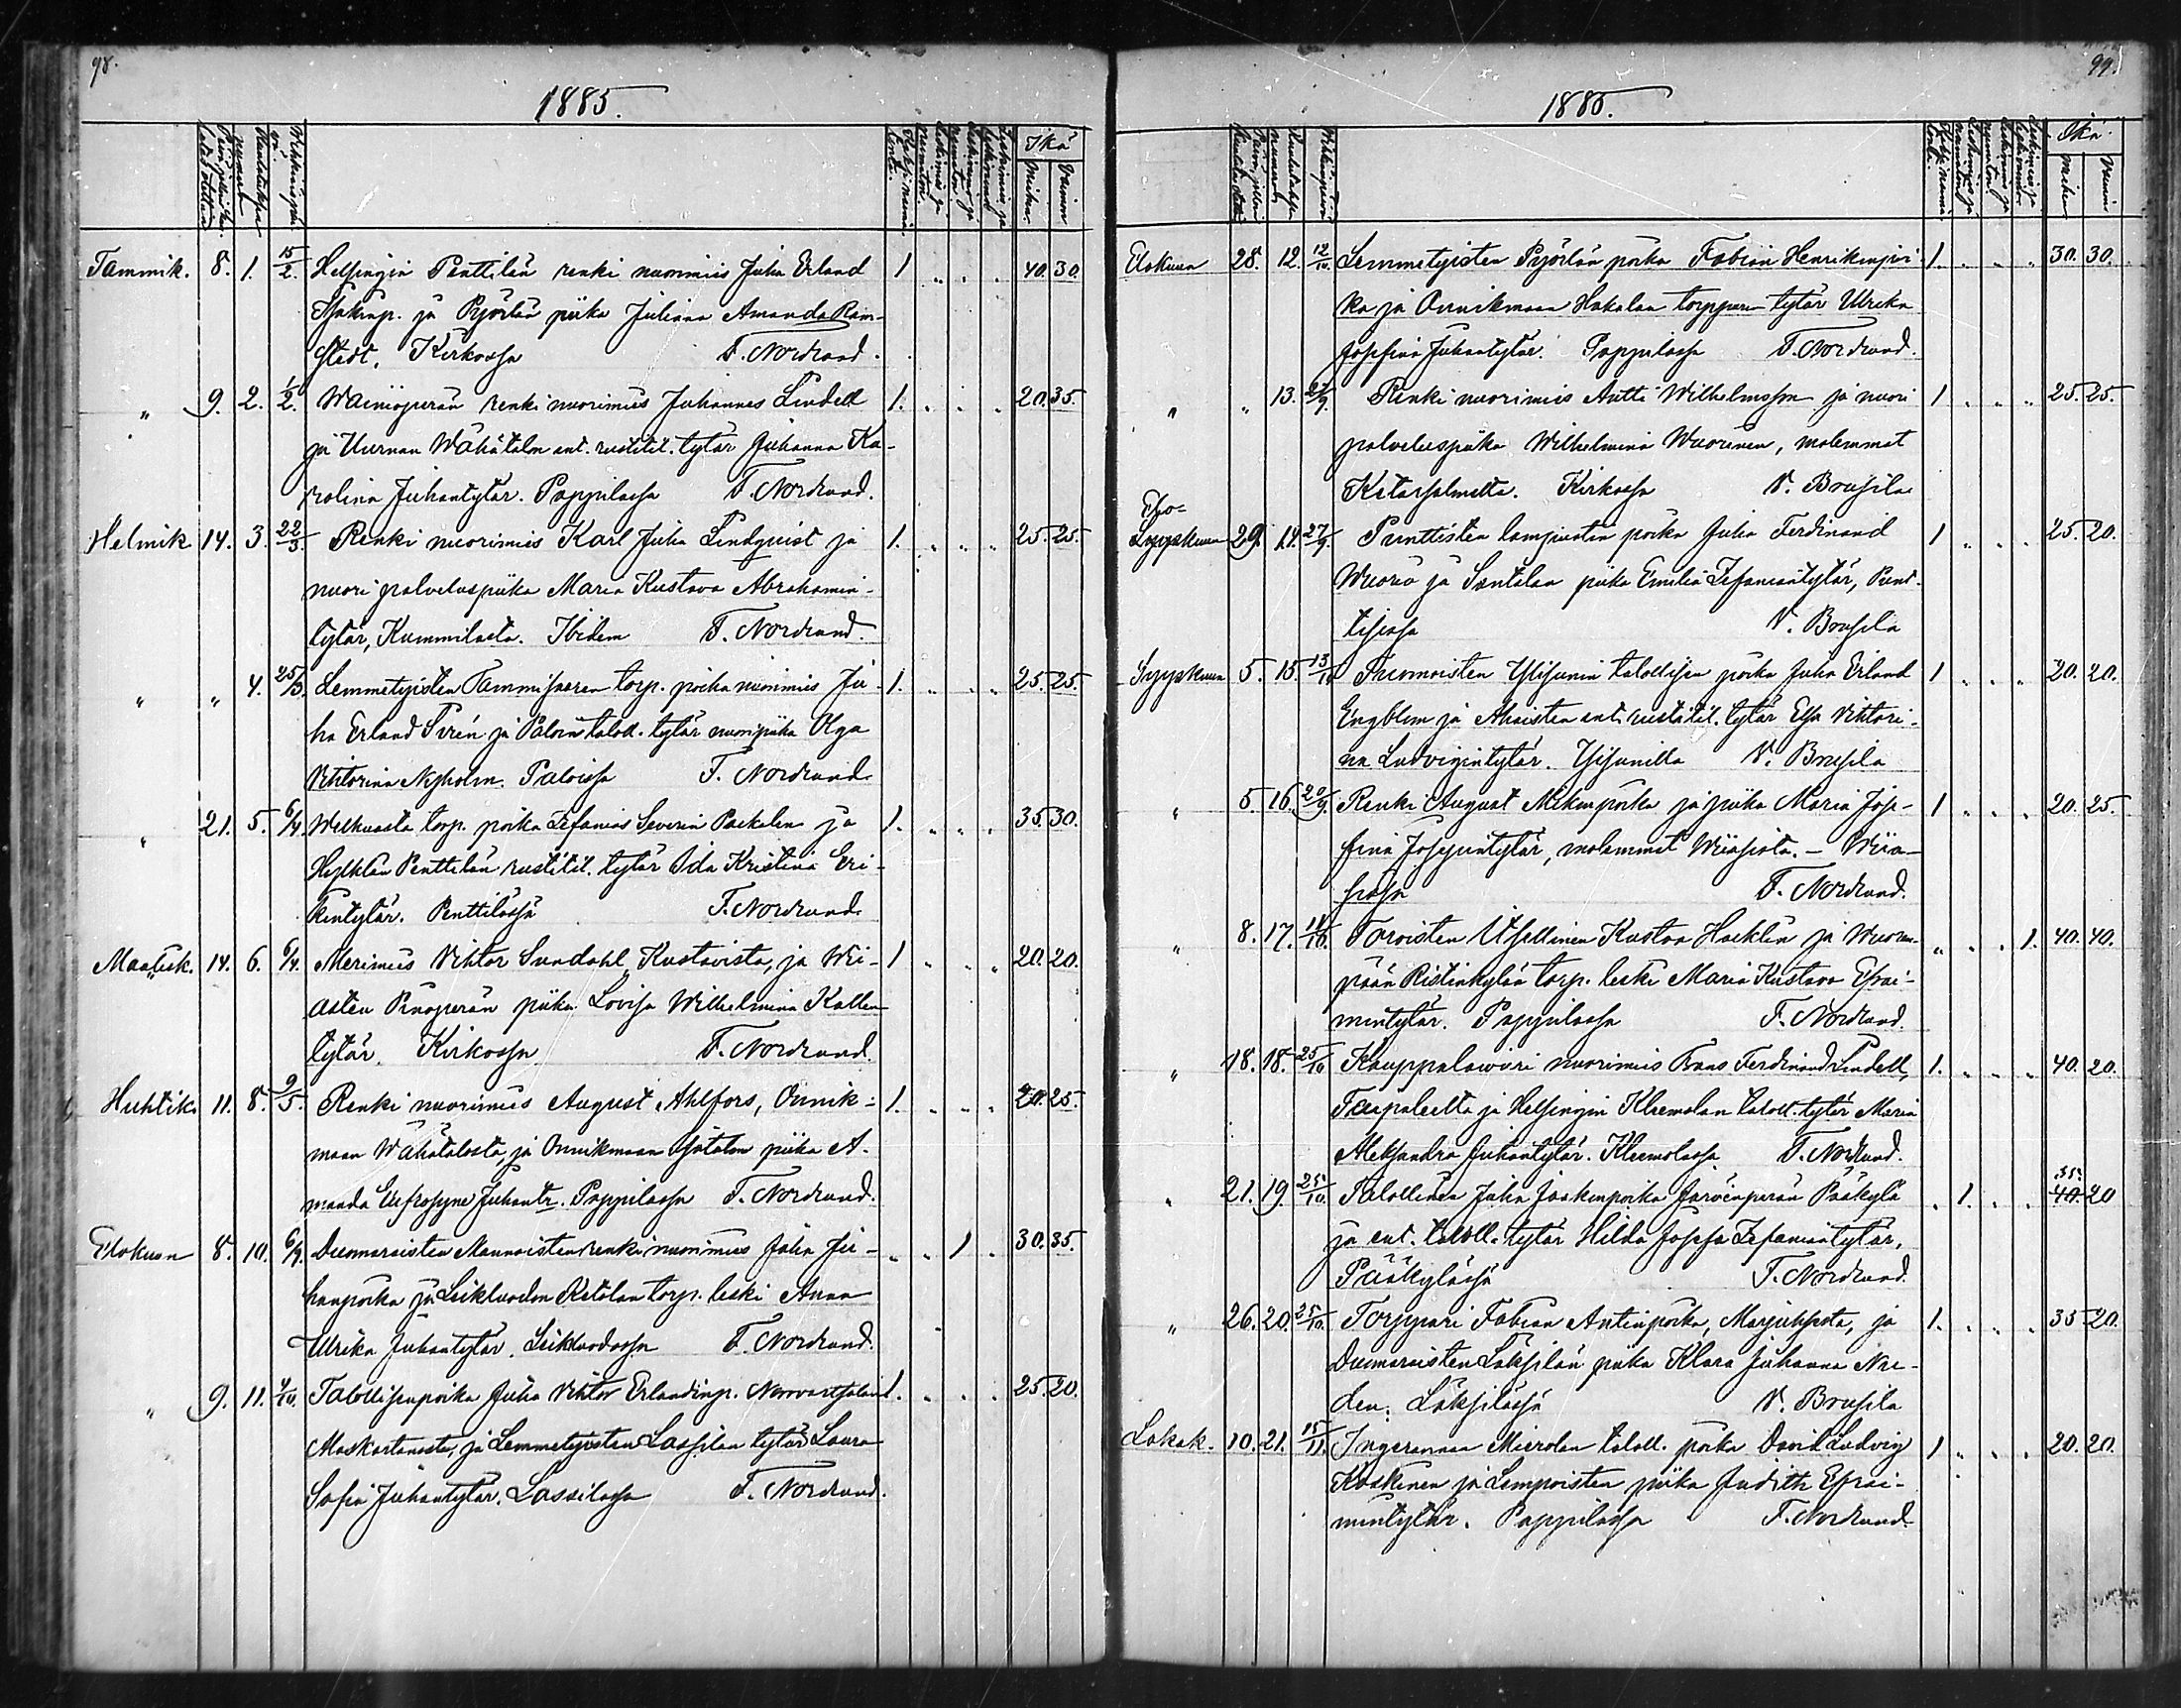 98.
1885.
Ikä
Miehen.
Vaimon
Tammik. 8. 1. 15/2. Helsingin Penttilän renki nuorimies Juha Erland 1 " " " 40. 30.
Isakinp. ja Pyörlän piika Juliana Amanda Ram-
stedt. Kirkossa F. Nordlund.
" 9. 2. 1/2. Wainioperän renki nuorimies Johannes Lindell 1. " " " 20. 35.
ja Uurnan Wähätalon ent. rustitil. tytär Johanna Ka-
rolina Juhantytär. Pappilassa F. Nordlund.
Helmik. 14. 3. 22/3. Renki nuorimies Karl Juha Lindquist ja 1. " " " 25. 25.
nuori palveluspiika Maria Kustava Abrahamin-
tytär, Kummilasta. Ibidem F. Nordlund.
" " 4. 25/3. Lemmetyisten Tammisaaren torp. poika nuorimies Ju- 1. " " " 25. 25.
ha Erland Sirén ja Paloin taloll. tytär nuoripiika Olga
Viktorina Nyholm. Paloissa F. Nordlund.
" 21. 5. 6/4. Welkuasta torp. poika Zefanias Severin Packalen ja 1. " " " 35. 30.
Hylkilän Penttilän rustitil. tytär Ida Kristina Eri-
kintytär. Penttilässä F. Nordlund.
Maalisk. 14. 6. 6/4. Merimies Viktor Sundahl, Kustavista, ja Wi- 1 " " " 20. 20.
asten piika Lovisa Wilhelmina Kallen-
tytär. Kirkossa F. Nordlund.
Huhtik. 11. 8. 9/5. Renki nuorimies August Ahlfors, Onnik- 1. " " " 20. 25.
maan Wähätalosta, ja Onnikmaan Isotalon piika A-
manda Eufrosyne Juhantr. Pappilassa F. Nordlund.
Elokuun 8. 10. 6/9. Dunmaraisten Mannaisten renki nuorimies Juha Ju- " " 1 " 30. 35.
hanpoika ja Leikluodon Ketolan torp. leski Anna
Ulrika Juhantytär. Leikluodossa F. Nordlund.
" 9. 11. 4/10. Talollisenpoika Juha Viktor Erlandinp. 1. " " " 25. 20.
Maskartanosta, ja Lemmetyisten Lassilan tytär Laura
Sofia Juhantytär. Lassilassa F. Nordlund.
99.
1885.
Ikä
Miehen
Vaimon
Elokuun 28. 12. 12/10. Lemmetyisten Pyörlän poika Fabian Henrikinpoi- 1. " " " 30. 30.
ka ja Onnikmaan Hakalan torpparin tytär Ulrika
Josefina Juhantytär. Pappilassa F. Nordlund.
" " 13. 27/9. Renki nuorimies Antti Wilhelmsson ja nuori 1 " " " 25. 25.
palveluspiika Wilhelmina Wuorinen, molemmat
Ketarsalmelta. Kirkossa V. Brusila
Elo-
29. 14. 27/9. Punttisten lampuotin poika Juha Ferdinand 1 " " " 25. 20.
Wuorio ja Santalan piika Emilia Zefaniantytär, Punt-
tisissa V. Brusila
Syyskuun 5. 15. 13/10. Tuomoisten Ylisunin talollisen poika Juha Erland 1 " " " 20. 20.
Engblom ja Ahaisten ent. rustitil. tytär Elsa Viktori-
na Ludvigintytär. Ylisunilla V. Brusila
" 5. 16. 20/9. Renki August Mikinpoika ja piika Maria Jose- 1 " " " 20. 25.
fina Josepintytär, molemmat Wiiaisista. - Wiia-
sissa F. Nordlund.
" 8. 17. 11/10. Taroisten Itsellinen Kustaa Hacklin ja Wuoren- " " " 1. 40. 40.
pään Ristinkylän torp. leski Maria Kustava Efrai-
mintytär. Pappilassa F. Nordlund.
" 18. 18. 25/10. Kauppalowiiri nuorimies Frans Ferdinand Lindell, 1. " " " 40. 20.
Taipaleelta ja Helsingin Kleemolan taloll. tytär Maria
Aleksandra Juhantytär. Kleemolassa F. Nordlund.
" 21. 19. 25/10. Talollinen Juha Jaakonpoika Järvenperän Pääkylä " 1. " " 35. 40. 20
ja ent. taloll. tytär Hilda Josefa Zefaniantytär,
Pääkylässä F. Nordlund.
" 26. 20. 25/10. Torppari Fabian Antinpoika, ja 1. " " " 35 20.
Dunmaraisten Laksilan piika Klara Johanna Nie-
den: Laksilassa V. Brusila
Lokak. 10. 21. 15/11. Ingeranmaa Mierolan taloll. poika David Ludvig 1 " " " 20. 20.
Koskinen ja Lempoisten piika Judith Efrai-
mintytär. Pappilassa F. Nordlund